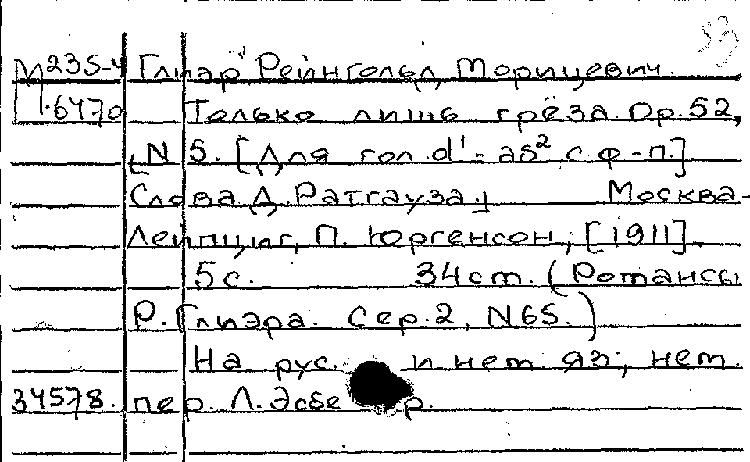 53
М235-4 Глиэр, Рейнгольд Морицевич.
1.6470 Только лишь грёза. Ор. 52,
N 5. [Для гол. d¹- as² с ф-п.]
Слова Д. Ратгауза. Москва-
Лейпциг, П. Юргенсон, [1911].
5 с. 34 cm. (Романсы
Р. Глиэра. Сер. 2, N65.)
На рус. и нем. яз.; нем.
34578. пер. Л. Эсбе р.